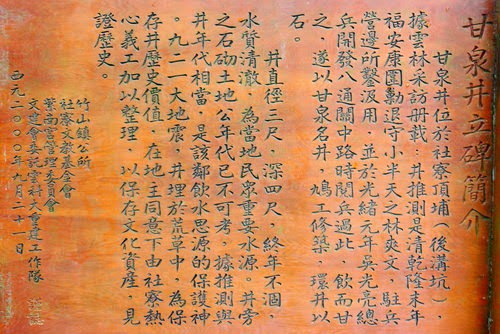 甘泉井立碑簡介
甘泉井位於社寮頂埔(後溝坑),
據雲林采訪冊載:井推測是清乾隆末年
福安康圍勦退守小半天之林爽文,駐兵
營邊所鑿汲用,並於光緒元年吳光亮總
兵開發八通關中路時閱兵過此,飲而甘
之,遂以甘泉名井,鳩工修築,環井以
石。
井直徑三尺,深四尺,終年不涸,
水質清澈,為當地民眾重要水源。井旁
之石砌土地公年代已不可考,據推測與
井年代相當,是該鄰飲水思源的保護神
。九二一大地震,井埋於荒草中,為保
存井歷史價值,在地主同意下由社寮熱
心義工加以整理,以保存文化資產,見
證歷史。
竹山鎮公所
社寮文教基金會
紫南宮管理委員會
文建會委託雲科大重建工作隊
西元二○○○年九月二十一日